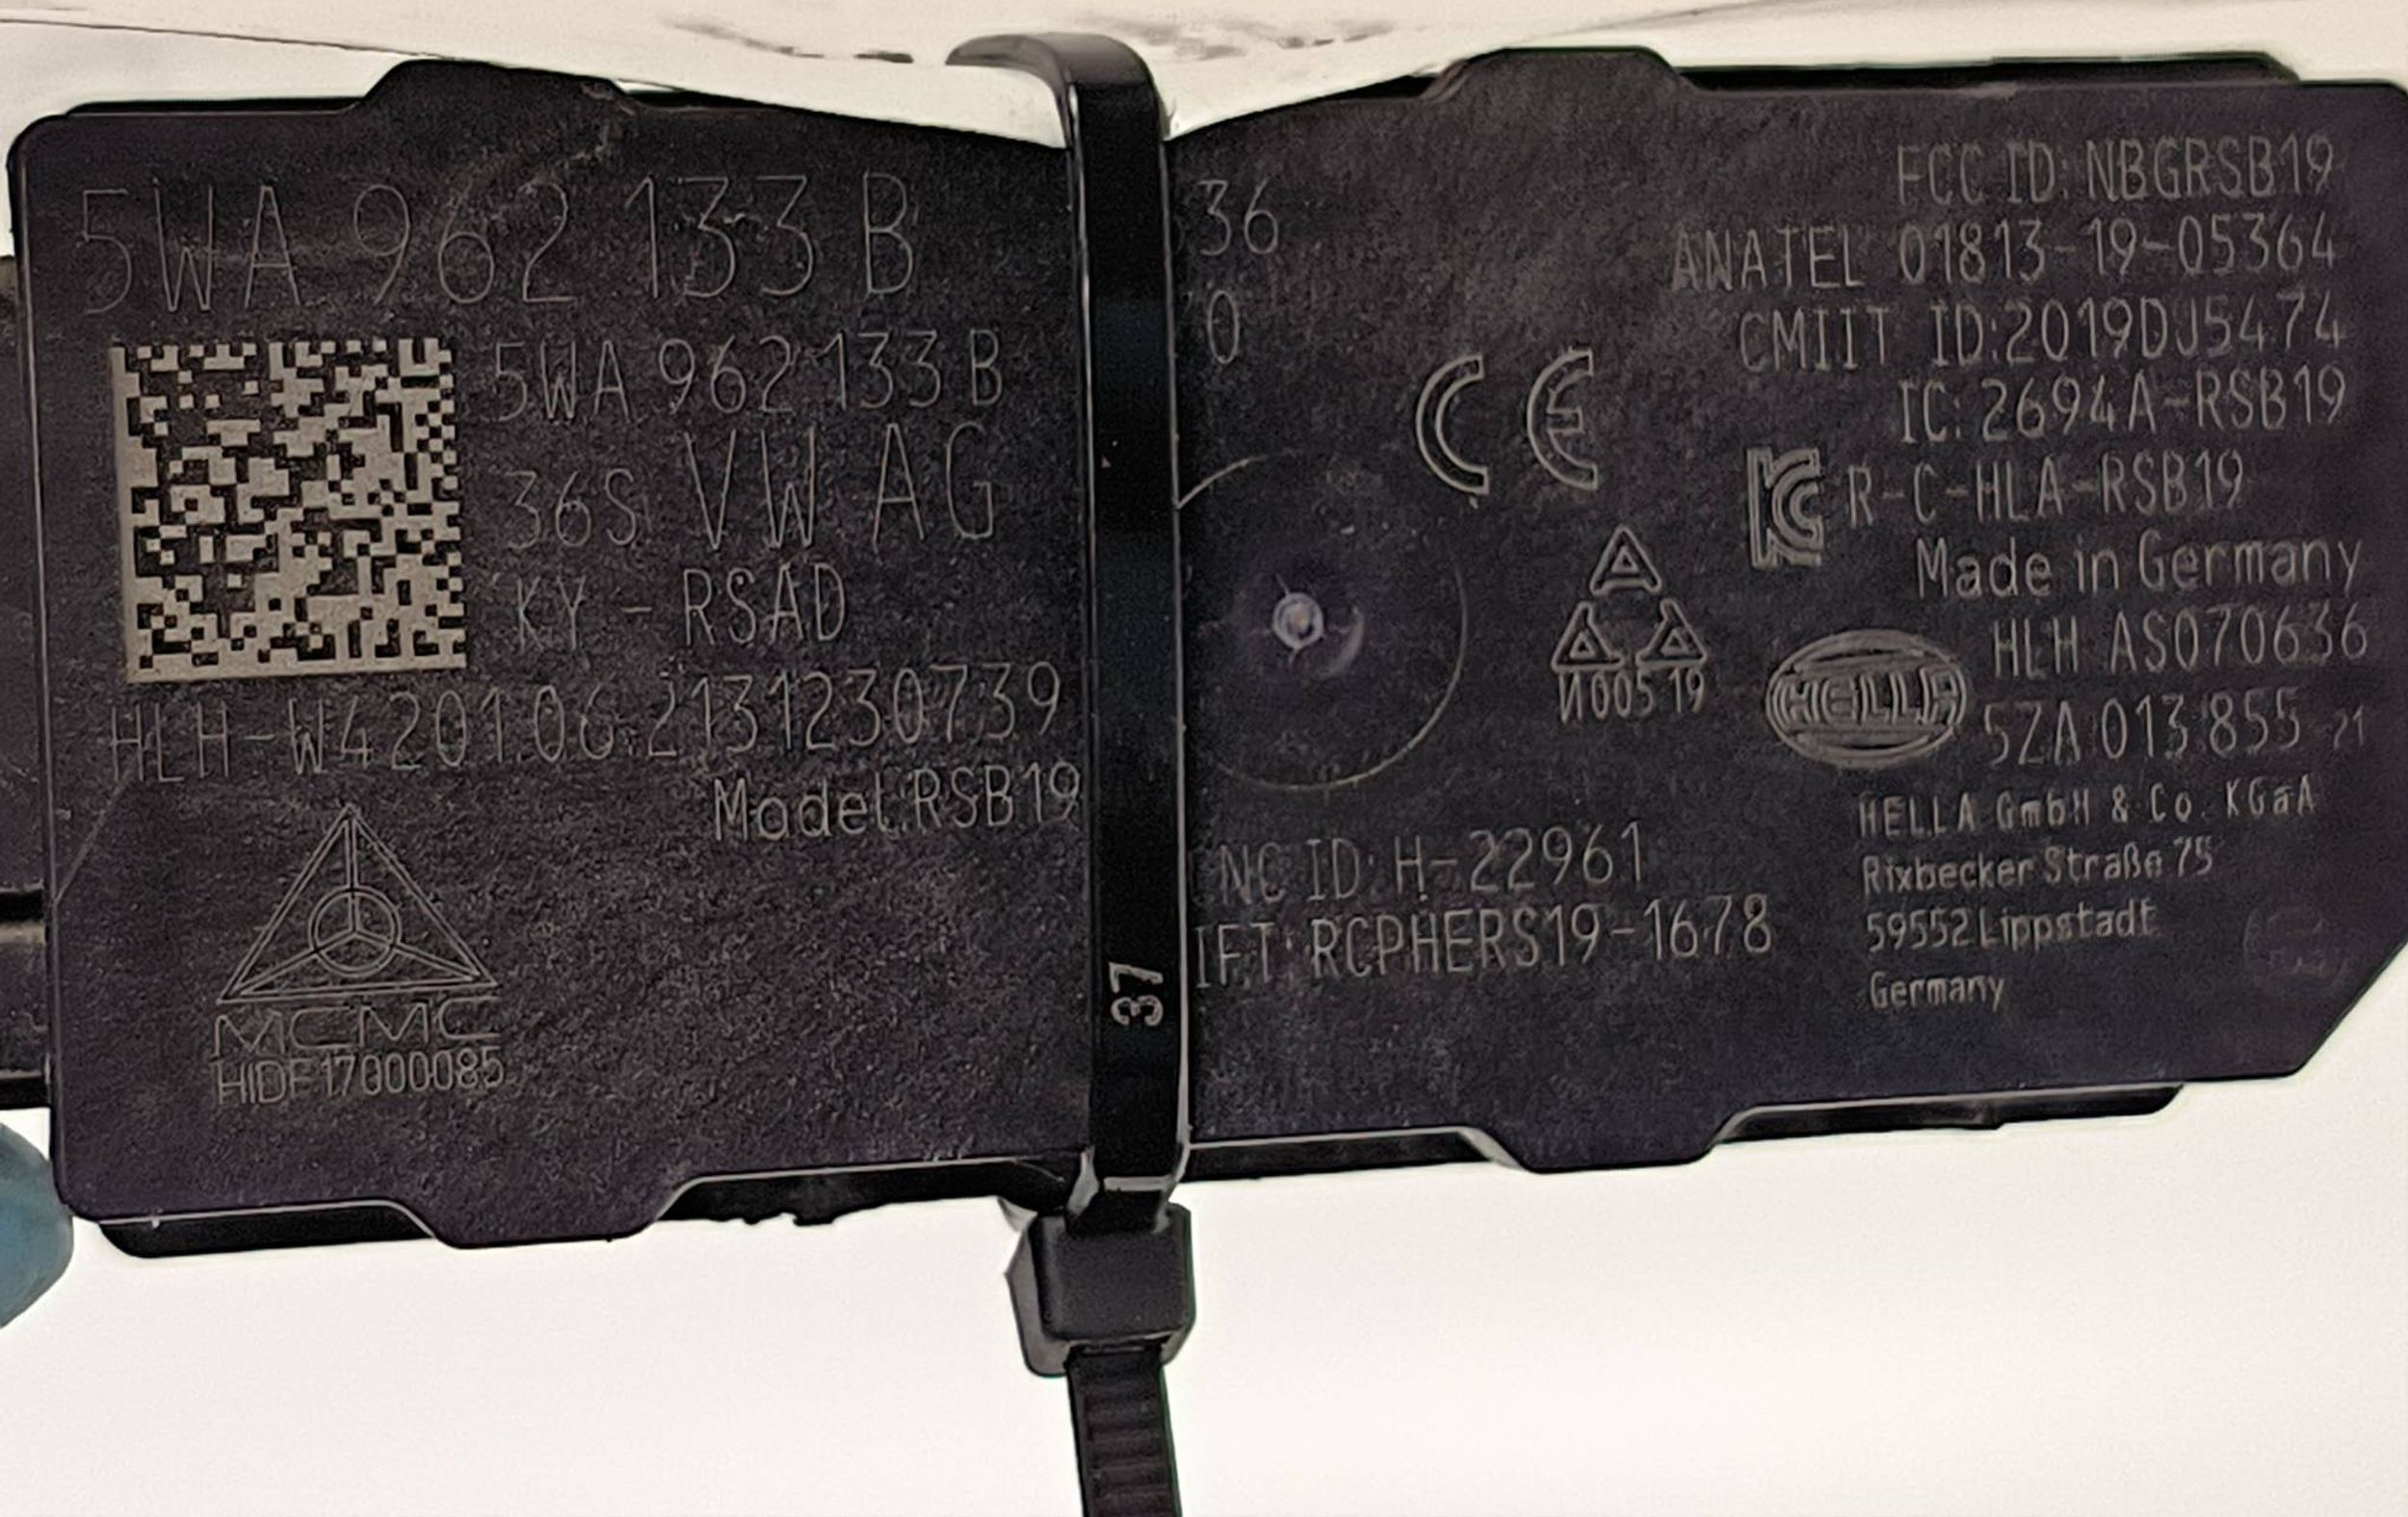 5WA 962 133 B
36
0
5WA 962 133 B
36S VW AG
KY - RSAD
HLH-W4201.06.2131230739
Model:RSB19
MCMC
HIDF17000085
37
CE
И005 19
NC ID: H-22961
IFT: RCPHERS19-1678
FCC ID: NBGRSB19
ANATEL 01813-19-05364
CMIIT ID:2019DJ5474
IC: 2694A-RSB19
R-C-HLA-RSB19
Made in Germany
HLH AS070636
HELLA 5ZA 013 855-21
HELLA GmbH & Co. KGaA
Rixbecker Straße 75
59552 Lippstadt
Germany